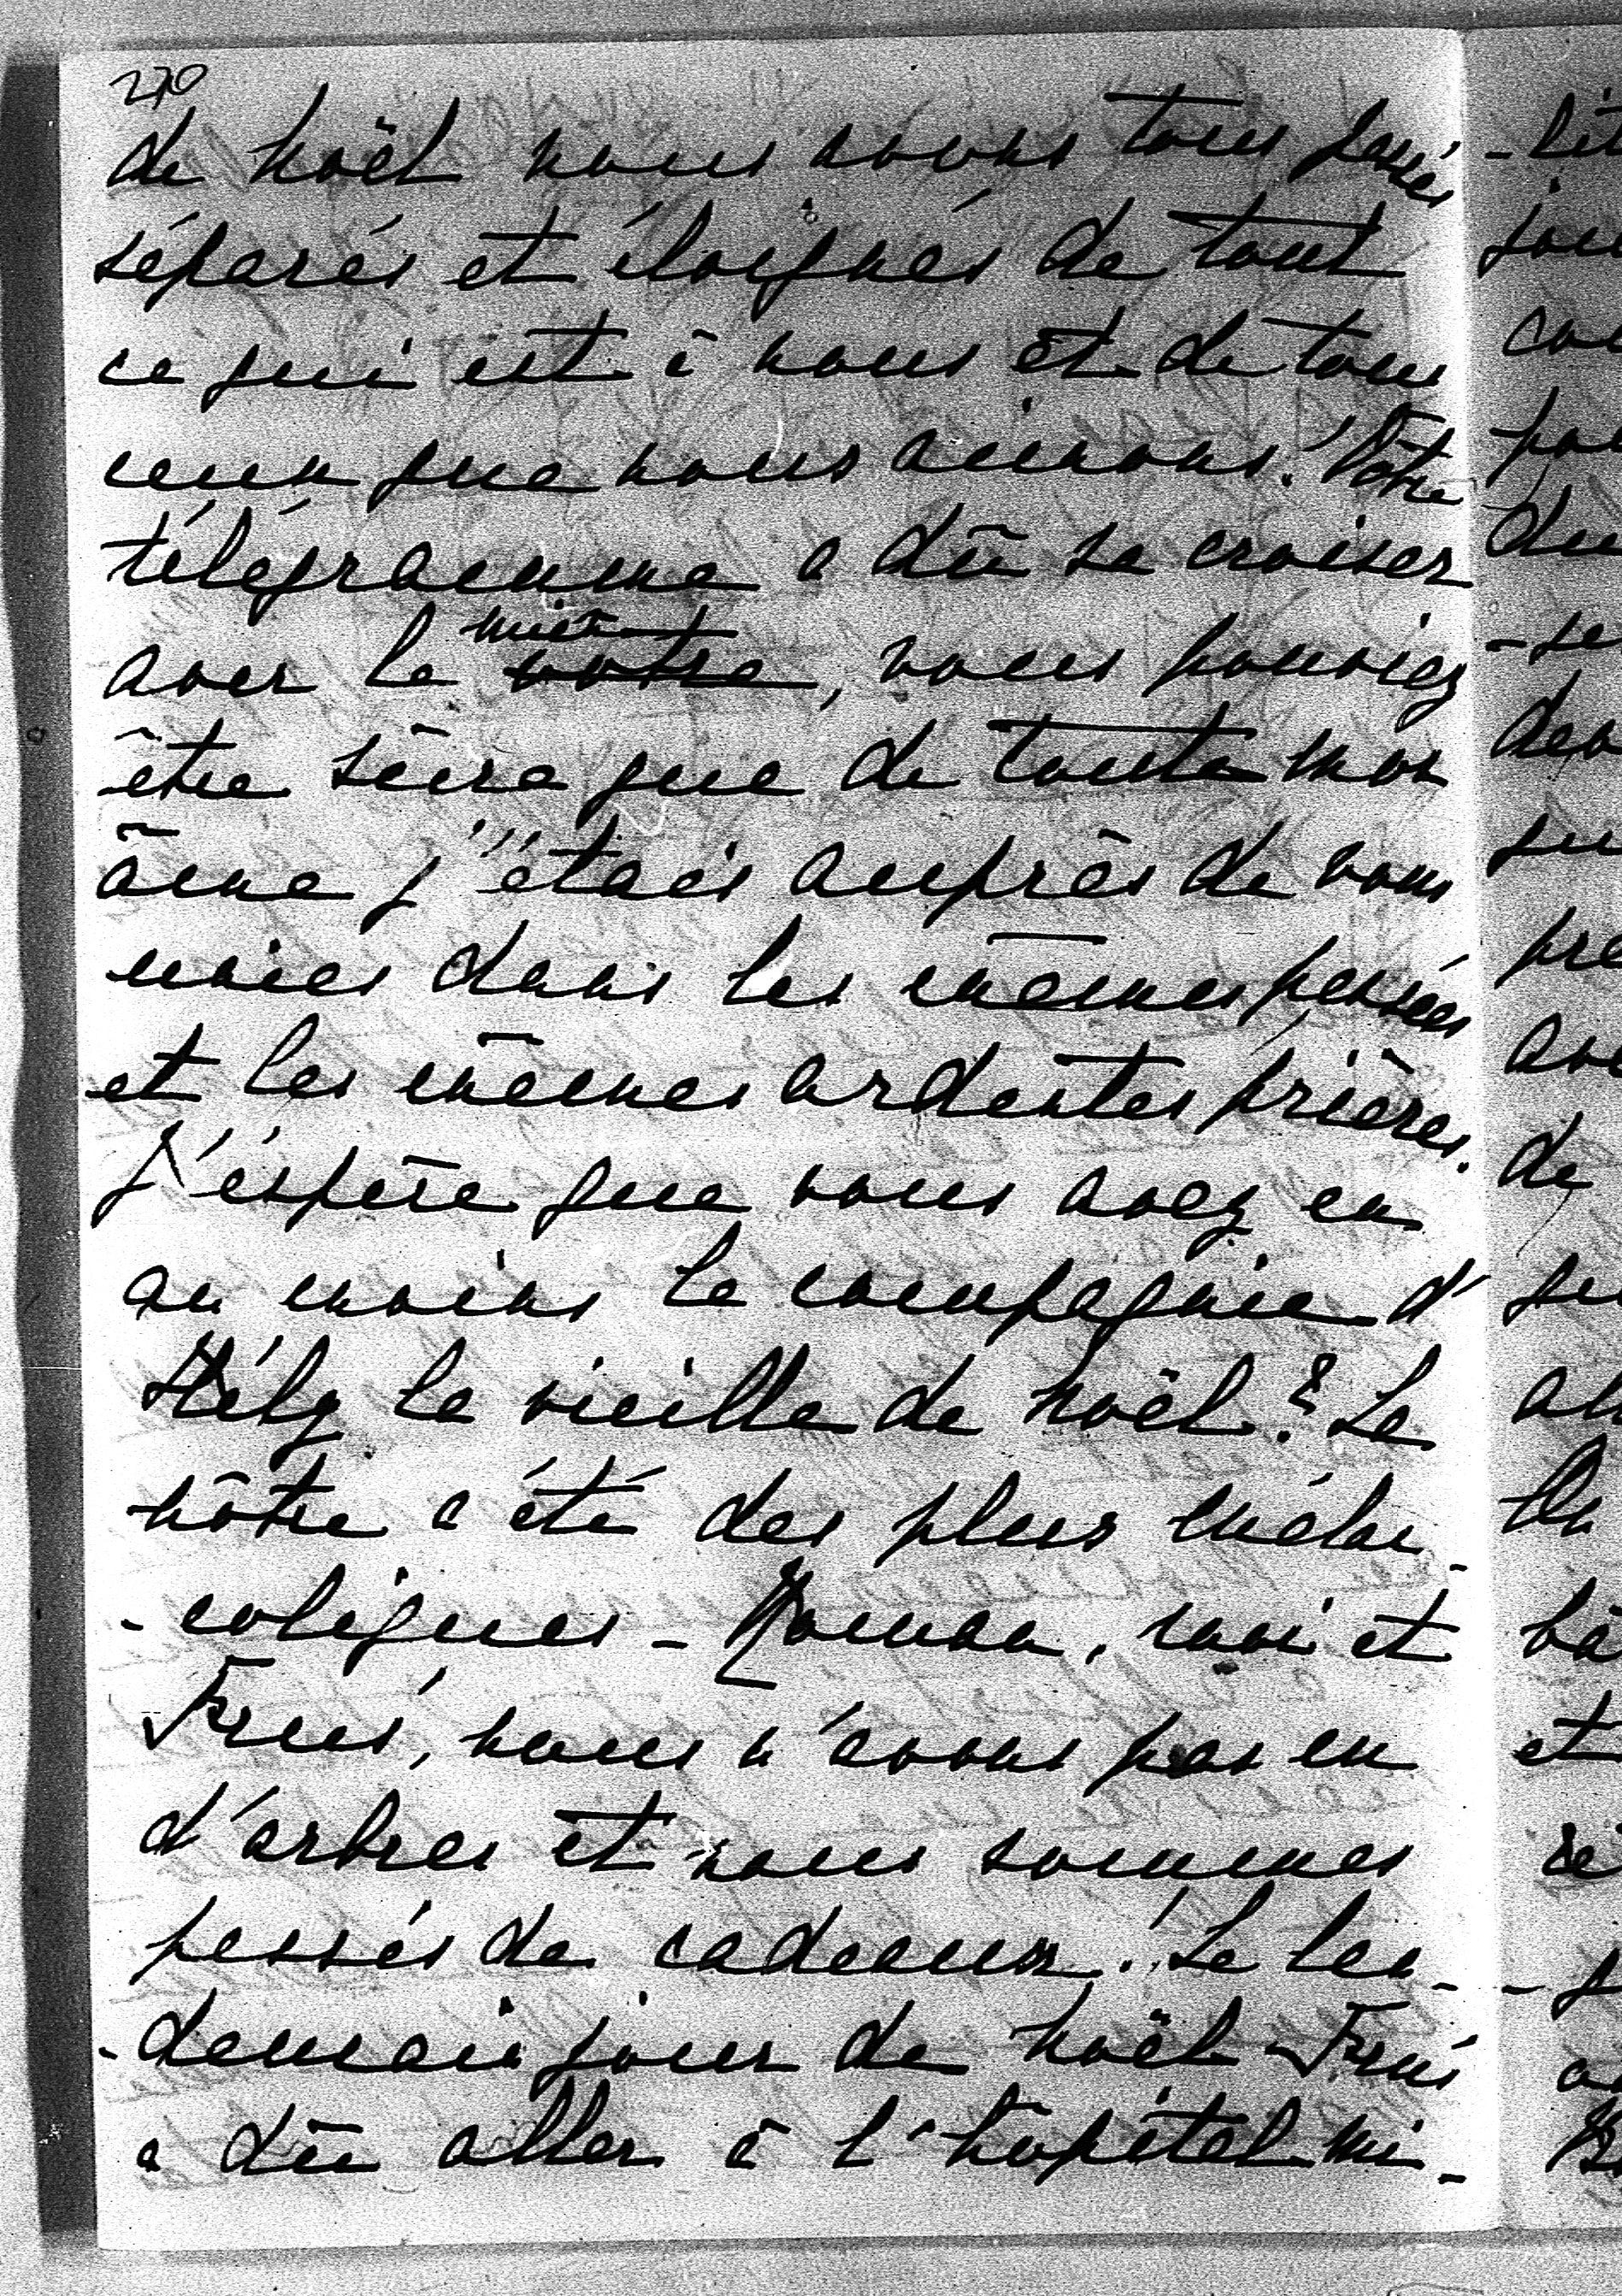 270
de Noël nous avons tous passés
séparés et éloignés de tout
ce qui est à nous et de tous
ceux que nous aimons! Votre
télégramme a dû se croiser
avec le mien votre, vous pouviez
être sûre que de toute mon
âme j'étais auprès de vous
unies dans les mêmes pensées
et les mêmes ardentes prières.
J'éspère que vous avez eu
au moins la compagnie d'
Hély la vieille de Noël? La
nôtre a été des plus mélan-
-coliques - Maman, moi et
nous n'avons pas eu
d'arbres et nous sommes
passés de cadeaux! Le len-
-demain jour de Noël
a dû aller à l'hôpital mi-